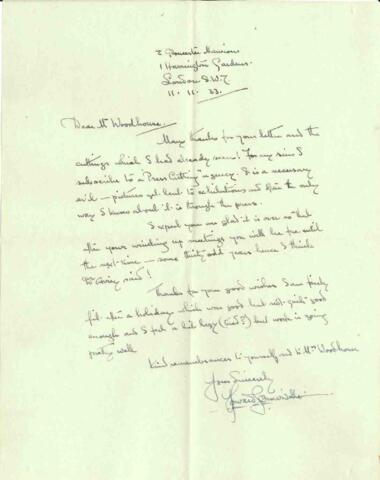 2 Gloucester Mansions
1 Harrington Gardens.
London S.W.7
11. 11. 33.
Dear Mr Woodhouse.
Many thanks for your letter and the
cuttings which I had already seen! For my sins I
subscribe to a Press Cutting agency. It is a necessary
evil — pictures get lent to exhibitions and often the only
way I know about it is through the press.
I expect you are glad it is over so that
after your winding up meetings you will be free until
the next time — some thirty odd years hence I think
said!
Thanks for your good wishes I am fairly
fit after a holiday which was good but not quite good
enough and I feel a bit lazy (tired?) but work is going
pretty well
Kind remembrances to yourself and to Mrs Woodhouse
Yours Sincerely